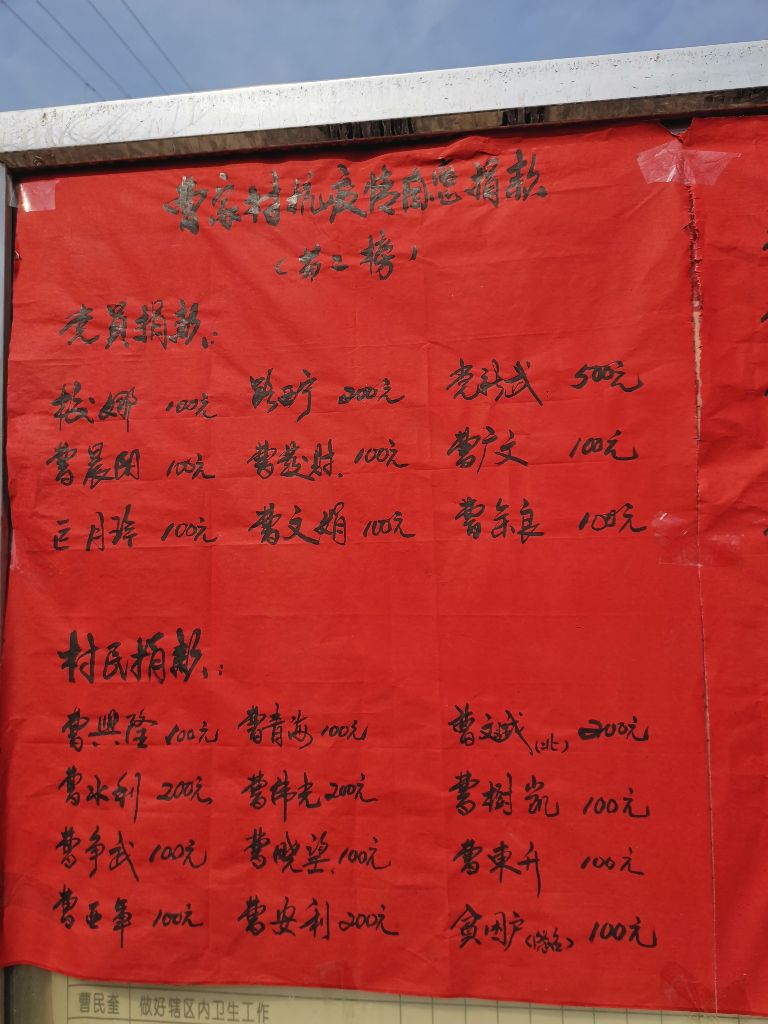 曹家村抗疫情自愿捐款
（第二榜）
党员捐款：
校娜 100元 路西宁 200元 党新武 500元
曹晨阳 100元 曹发财 100元 曹广文 100元
巨月玲 100元 曹文娟 100元 曹余良 100元
村民捐款：
曹興隆 100元 曹青海 100元 曹文成（北） 200元
曹水利 200元 曹伟光 200元 曹樹凯 100元
曹争武 100元 曹晓望 100元 曹東升 100元
曹亚军 100元 曹安利 200元 贫困户 100元
曹民奎 做好辖区内卫生工作